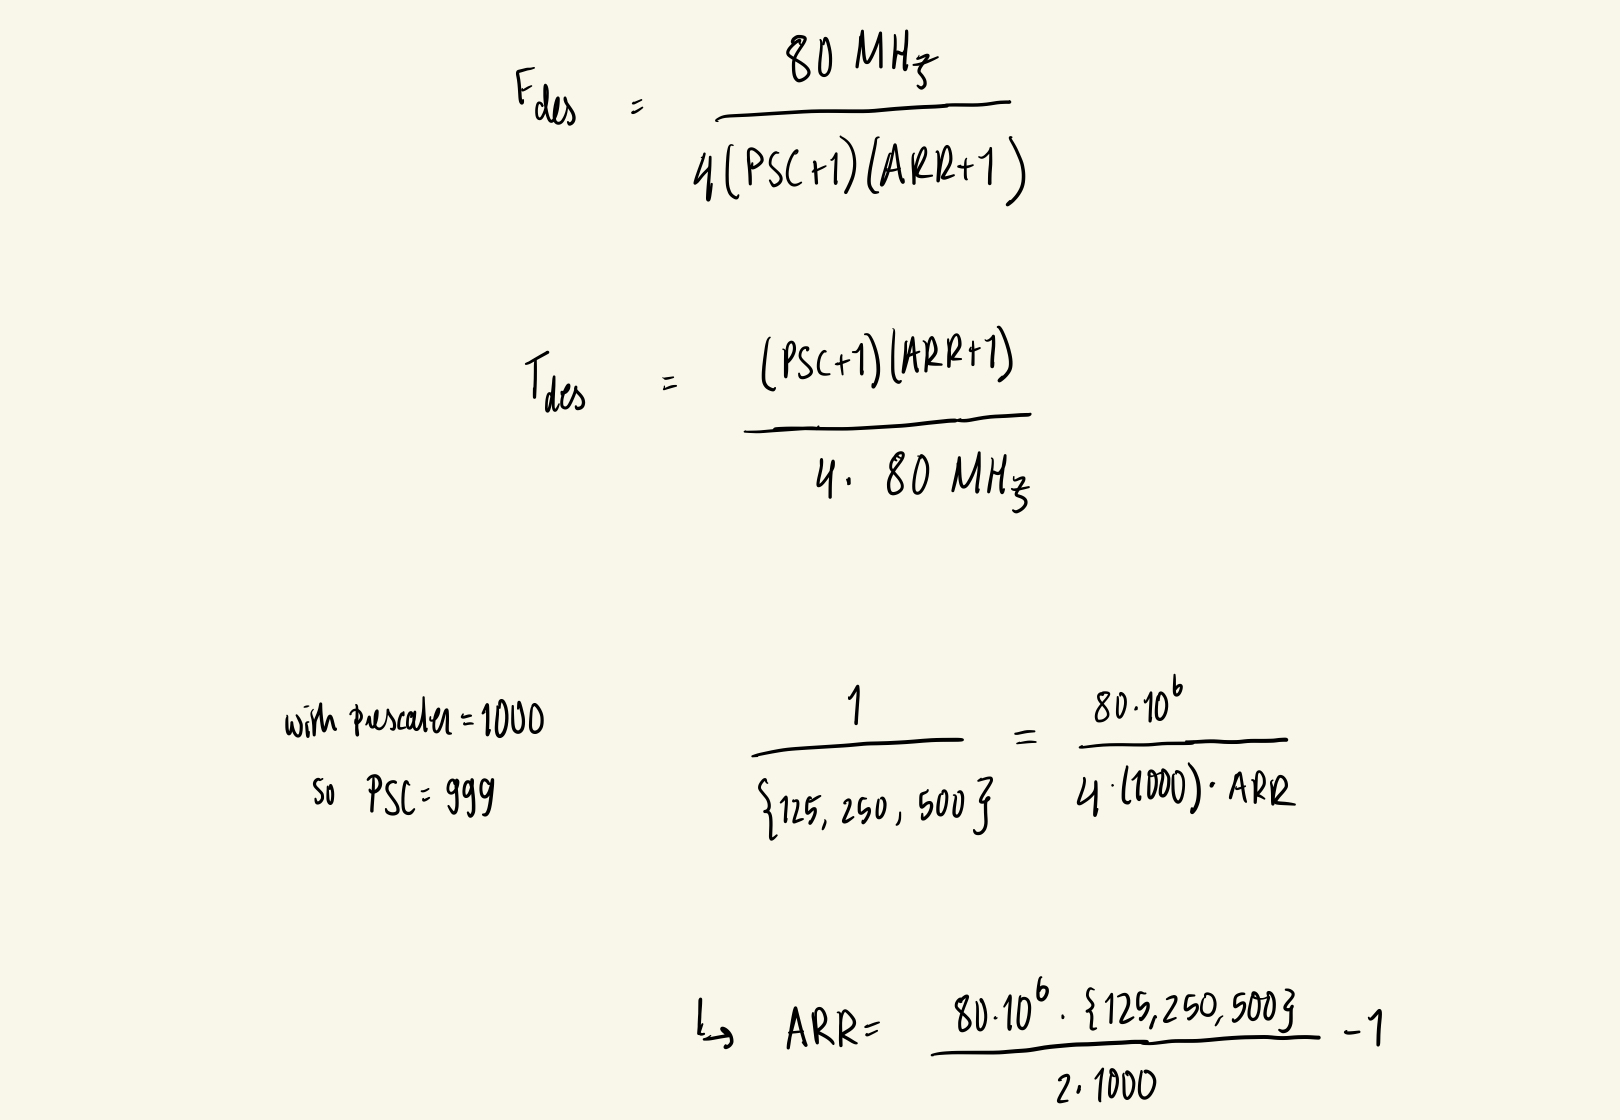 F_des = 80 MHz / 4(PSC+1)(ARR+1)
T_des = (PSC+1)(ARR+1) / 4· 80 MHz
with prescaler = 1000
so PSC = 999
1 / {125, 250, 500} = 80·10^6 / 4·(1000)·ARR
↳ ARR = 80·10^6 · {125, 250, 500} / 2·1000 -1